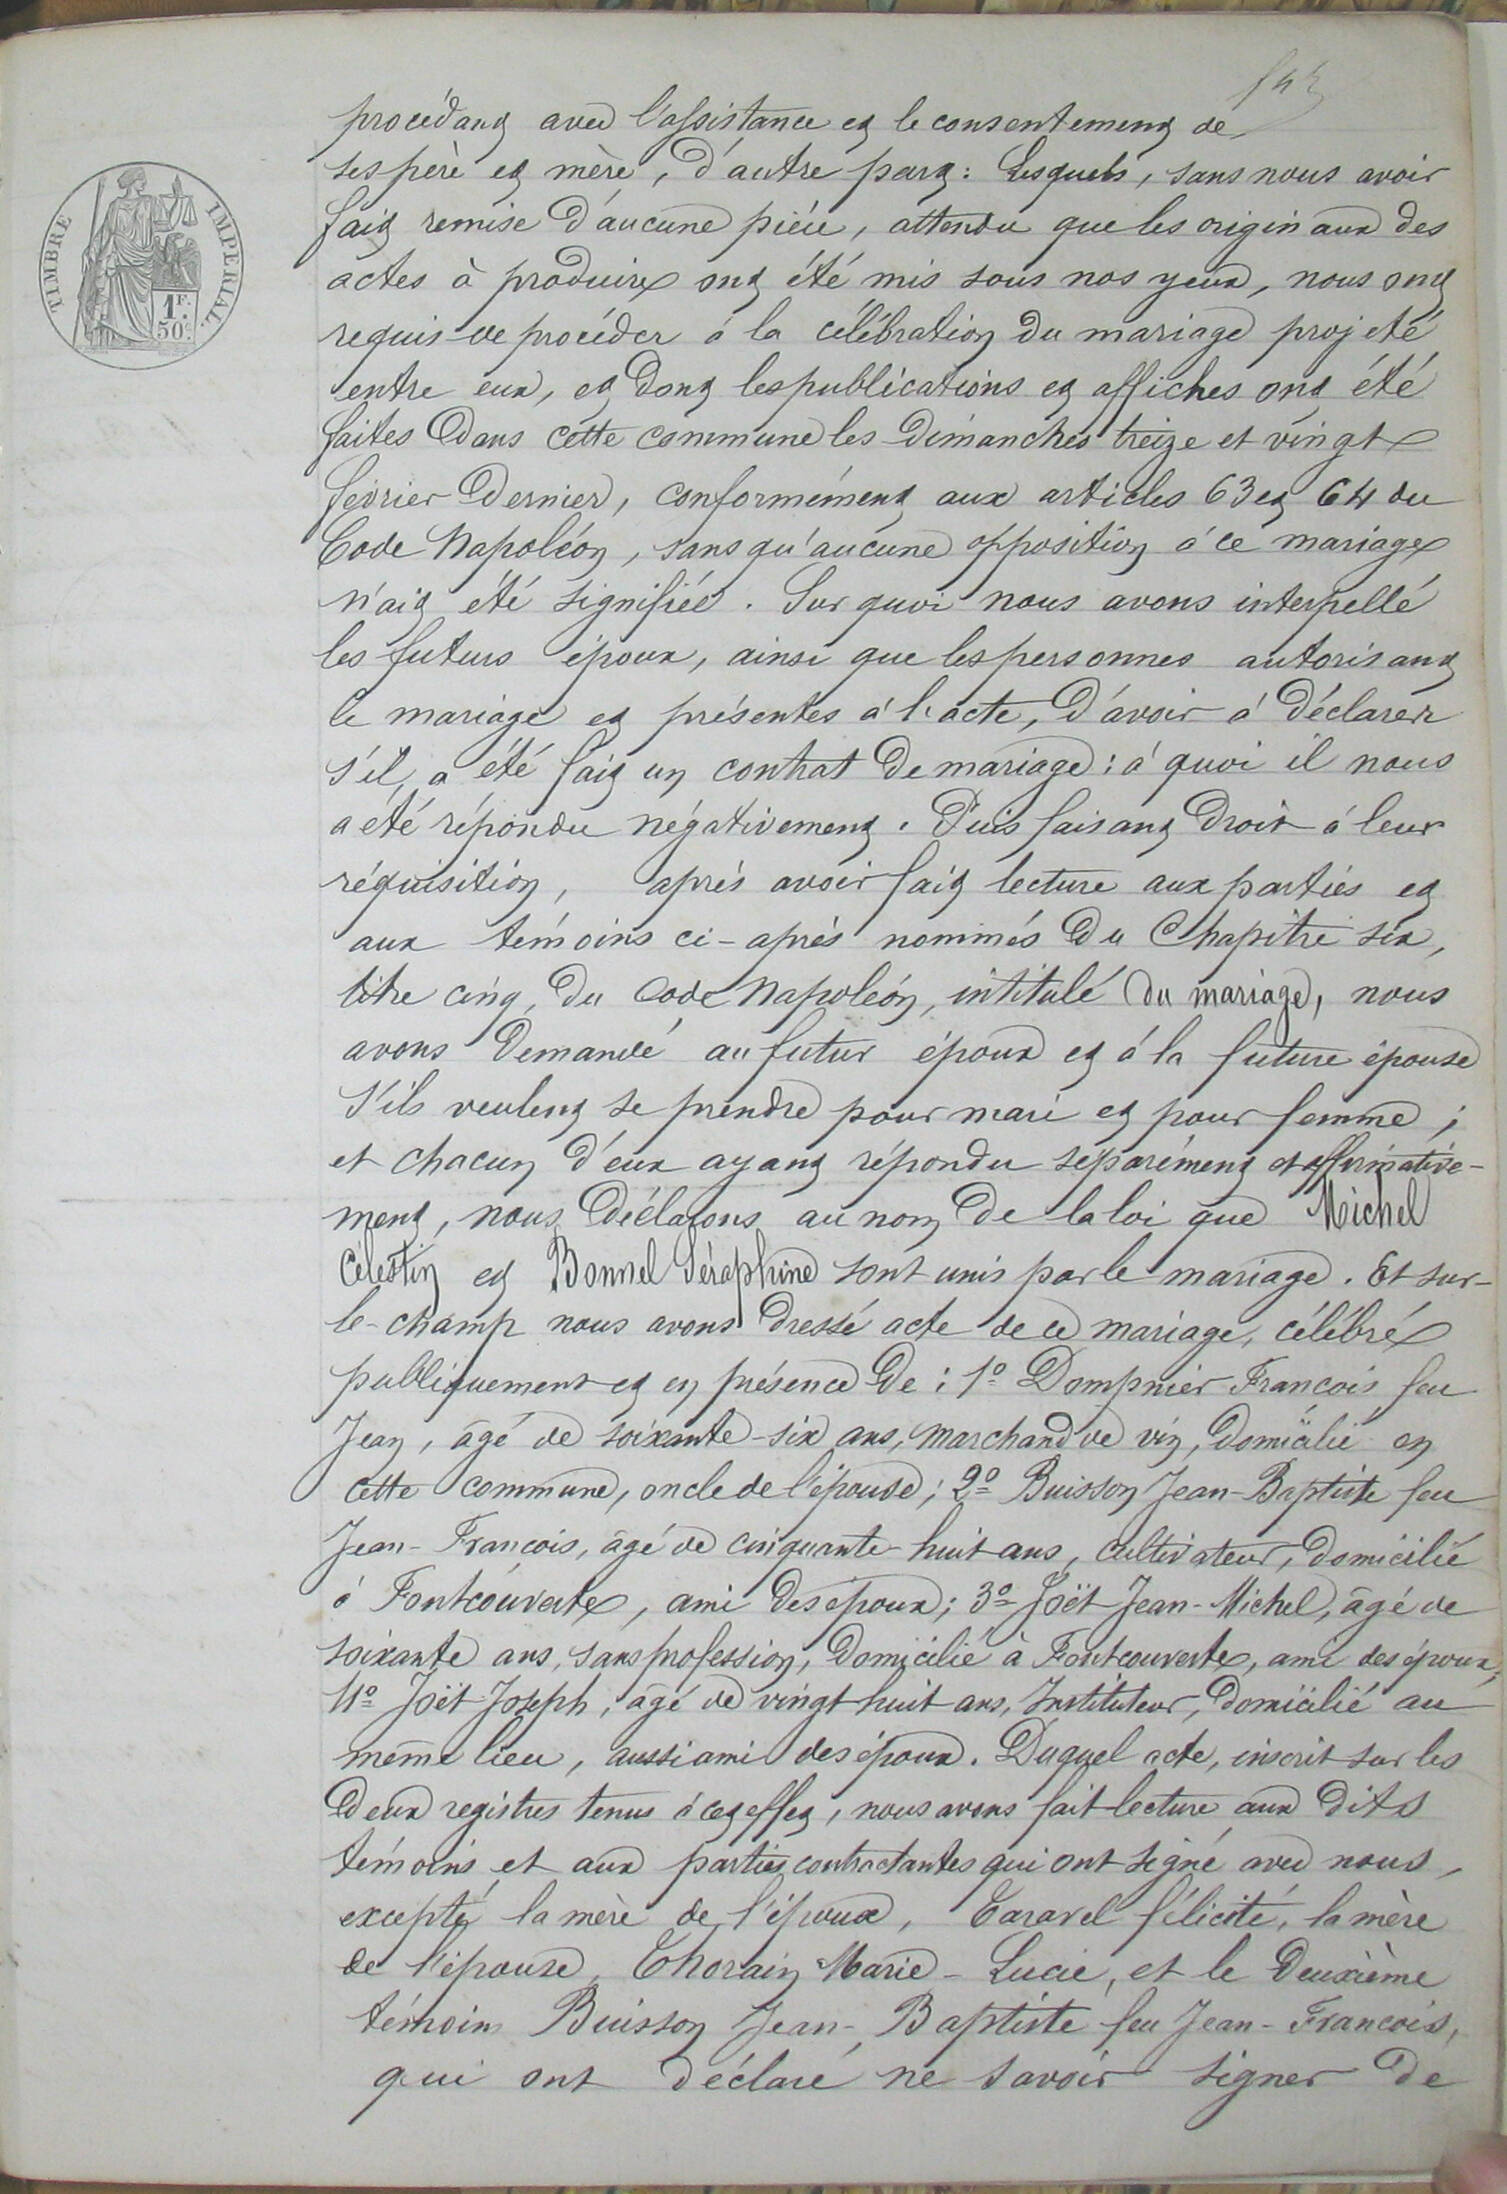 procédant avec l'assistance et le consentement de
ses père et mère, d'autre part : Lesquels, sans nous avoir
fait remise d'aucune pièce, attendu que les originaux des
actes à produire ont été mis sous nos yeux, nous ont
requis de procéder à la célébration du mariage projeté
entre eux, et dont les publications et affiches ont été
faites dans cette commune les dimanches treize et vingt
février dernier, conformément aux articles 63 et 64 du
Code Napoléon, sans qu'aucune opposition à ce mariage
n'ait été signifiée. Sur quoi nous avons interpellé
les futurs époux, ainsi que les personnes autorisant
le mariage et présentes à l'acte, d'avoir à déclarer
s'il a été fait un contrat de mariage : à quoi il nous
a été répondu négativement. Puis faisant droit à leur
réquisition, après avoir fait lecture aux parties et
aux témoins ci-après nommés du Chapitre six,
titre cinq, du Code Napoléon, intitulé du mariage, nous
avons demandé au futur époux et à la future épouse
s'ils veulent se prendre pour mari et pour femme ;
et chacun d'eux ayant répondu séparément et affirmative-
ment, nous déclarons au nom de la loi que Michel
Célestin et Bonnel Séraphine sont unis par le mariage. Et sur-
le-champ nous avons dressé acte de ce mariage, célébré
publiquement et en présence de : 1º Dompnier François feu
Jean, âgé de soixante-six ans, marchand de vin, domicilié en
cette commune, oncle de l'épouse ; 2º Buisson Jean-Baptiste feu
Jean-François, âgé de cinquante-huit ans, cultivateur, domicilié
à Fontcouverte, ami des époux ; 3º Joët Jean-Michel, âgé de
soixante ans, sans profession, domicilié à Fontcouverte, ami des époux ;
4º Joët Joseph, âgé de vingt huit ans, Instituteur, domicilié au
même lieu, aussi ami des époux. Duquel acte, inscrit sur les
deux registres tenus à cet effet, nous avons fait lecture aux dits
témoins et aux parties contractantes qui ont signé avec nous,
excepté la mère de l'époux, Taravel félicité, la mère
de l'épouse, Thorain Marie-Lucie, et le deuxième
témoin Buisson Jean-Baptiste feu Jean-François,
qui ont déclaré ne savoir signer de
TIMBRE IMPERIAL.
1F.
50c.